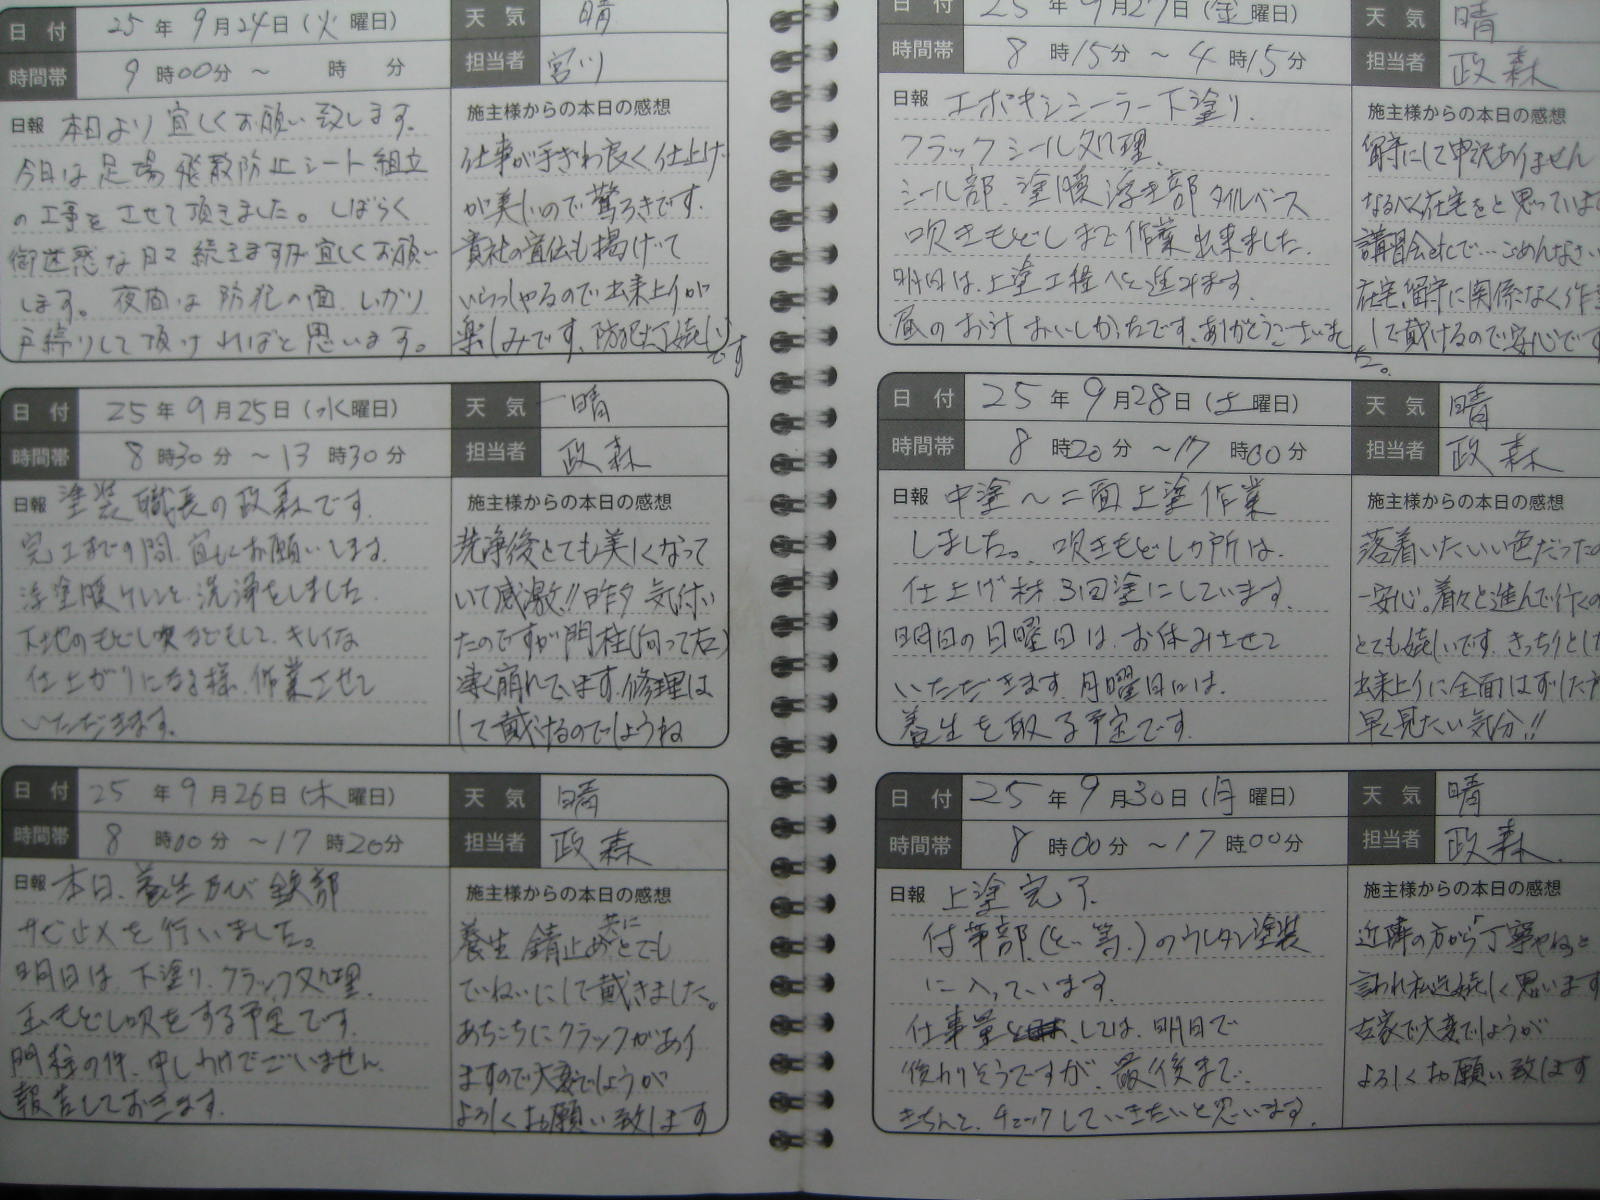 日付 25年9月24日(火曜日) 天気 晴
時間帯 9時00分～ 時 分 担当者 宮川
日報 本日より宜しくお願い致します。
今日は足場飛散防止シート組立
の工事をさせて頂きました。しばらく
御迷惑な日々続きますが宜しくお願い
します。夜間は防犯の面、しっかり
戸締りして頂ければと思います。
施主様からの本日の感想
仕事が手ぎわ良く仕上げ
が美しいので驚ろきです。
貴社の宣伝も掲げて
いらっしゃるので出来上りが
楽しみです、防犯灯嬉しい
です
日付 25年9月25日(水曜日) 天気 晴
時間帯 8時30分～13時30分 担当者 政森
日報 塗装職長の政森です。
完工までの間、宜しくお願いします。
浮塗膜ケレンと、洗浄をしました。
下地のもどし吹などもして、キレイな
仕上がりになる様、作業させて
いただきます。
施主様からの本日の感想
洗浄後とても美しくなって
いて感激!!昨夕、気付い
たのですが門柱(向って右)
凄く崩れています、修理は
して戴けるのでしょうね
日付 25年9月26日(木曜日) 天気 晴
時間帯 8時00分～17時20分 担当者 政森
日報 本日、養生及び鉄部
サビ止メを行いました。
明日は、下塗り、クラック処理、
玉もどし吹をする予定です。
門柱の件、申しわけでございません。
報告しておきます。
施主様からの本日の感想
養生 錆止め共にとても
ていねいにして戴きました。
あちこちにクラックがあり
ますので大変でしょうが
よろしくお願い致します
日付 25年9月27日(金曜日) 天気 晴
時間帯 8時15分～4時15分 担当者 政森
日報 エポキシシーラー下塗り、
クラックシール処理、
シール部、塗膜浮き部タイルベース
吹きもどしまで作業出来ました。
明日は、上塗工程へと進みます。
昼のお汁おいしかったです、ありがとうございまし
た。
施主様からの本日の感想
留守にして申訳ありません
なるべく在宅をと思っています
講習会etcで…ごめんなさい
在宅、留守に関係なく作業
して戴けるので安心です
日付 25年9月28日(土曜日) 天気 晴
時間帯 8時20分～17時00分 担当者 政森
日報 中塗～二面上塗作業
しました。吹きもどしカ所は、
仕上げ材、3回塗にしています。
明日の日曜日は、お休みさせて
いただきます。月曜日には、
養生を取る予定です。
施主様からの本日の感想
落着いたいい色だったの
一安心。着々と進んで行くの
とても嬉しいです。きっちりとし
出来上りに全面はずした
早く見たい気分!!
日付 25年9月30日(月曜日) 天気 晴
時間帯 8時00分～17時00分 担当者 政森
日報 上塗完了、
付帯部、(とい等)のウレタン塗装
に入っています。
仕事量としては、明日で
終わりそうですが、最後まで、
きちんと、チェックしていきたいと思います。
施主様からの本日の感想
近隣の方から「丁寧やねと
言われ私達嬉しく思います
古家で大変でしょうが
よろしくお願い致します